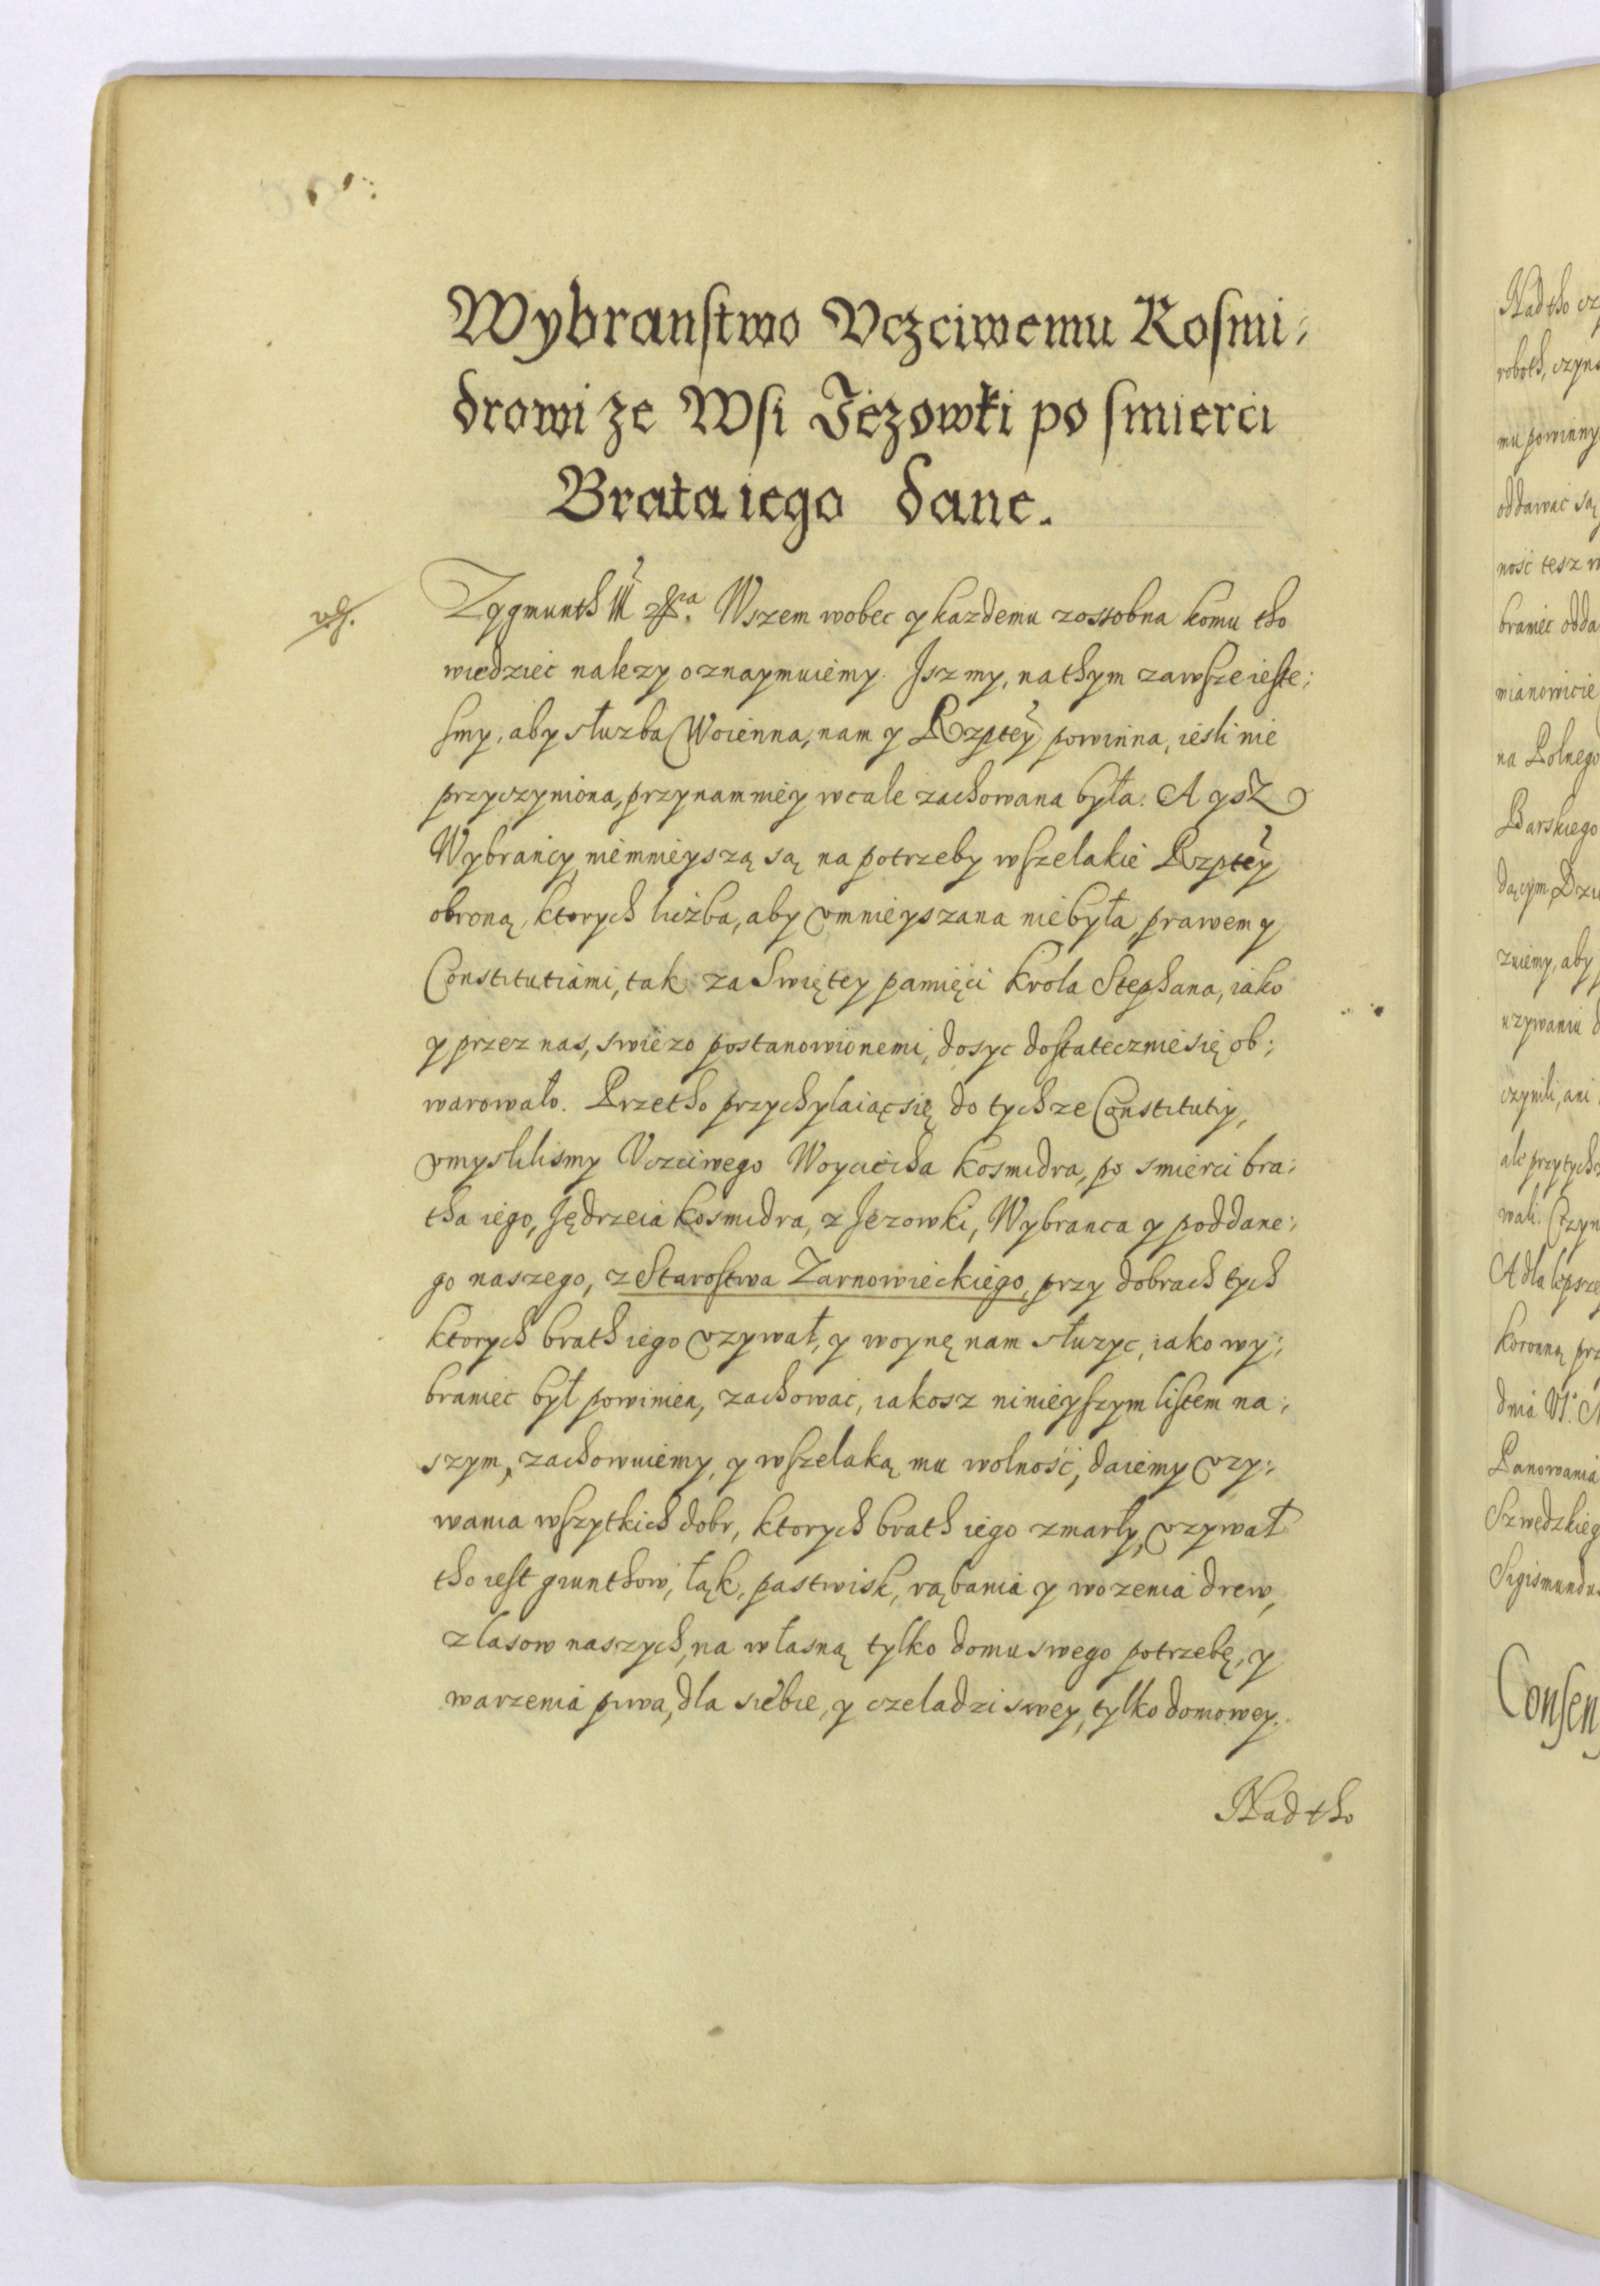 Wybranstwo Vczciwemu Kosmi-
drowi ze Wsi Jezowki po smierci
Brata iego dane.
Zygmunth III Wszem wobec y kazdemu zossobna komu tho
wiedziec nalezy oznaymuiemy. Jsz my, na thym zawsze ieste-
smy, aby słuzba Woienna, nam y Rzptey powinna, iesli nie
przyczyniona, przynammiey wcale zachowana była. A ysz
Wybrancy niemnieyszą są na potrzeby wszelakie Rzptey
obroną, ktorych liczba, aby vmnieyszana niebyła, prawem y
Constitutiami, tak za Swiętey pamięci Krola Stephana, iako
y przez nas, swiezo postanowionemi, dosyc dostatecznie się ob-
warowało. Przetho przychylaiąc się do tychze Constitutiy,
vmyslilismy Vczciwego Woyciecha Kosmidra, po smierci bra-
tha iego, Jędrzeia Kosmidra, z Jezowki, Wybranca y poddane-
go naszego, z Starostwa Zarnowieckiego, przy dobrach tych
ktorych brath iego vzywał, y woynę nam słuzyc, iako wy-
braniec był powinien, zachować, iakosz ninieyszym listem na-
szym, zachowuiemy, y wszelaką mu wolność, daiemy vzy-
wania wszytkich dobr, ktorych brath iego zmarły, vzywał
tho iest grunthow, łąk, pastwisk, rąbania y wozenia drew,
z lasow naszych, na własną tylko domu swego potrzebę, y
warzenia piwa, dla siebie, y czeladzi swey, tylko domowey.
Nad tho
Nad tho
roboth, czyn
mu powinny
oddawać są
ność tesz
braniec odda
mianowicie
na Polnego
Barskiego
dącym, Dzi
zuiemy, aby
uzywaniu
czynili, ani
ale przy tych
wali. Czyn
A dla lepsze
koronną prz
dnia VI.
Panowania
Szwedzkieg
Sigismundus
Consen